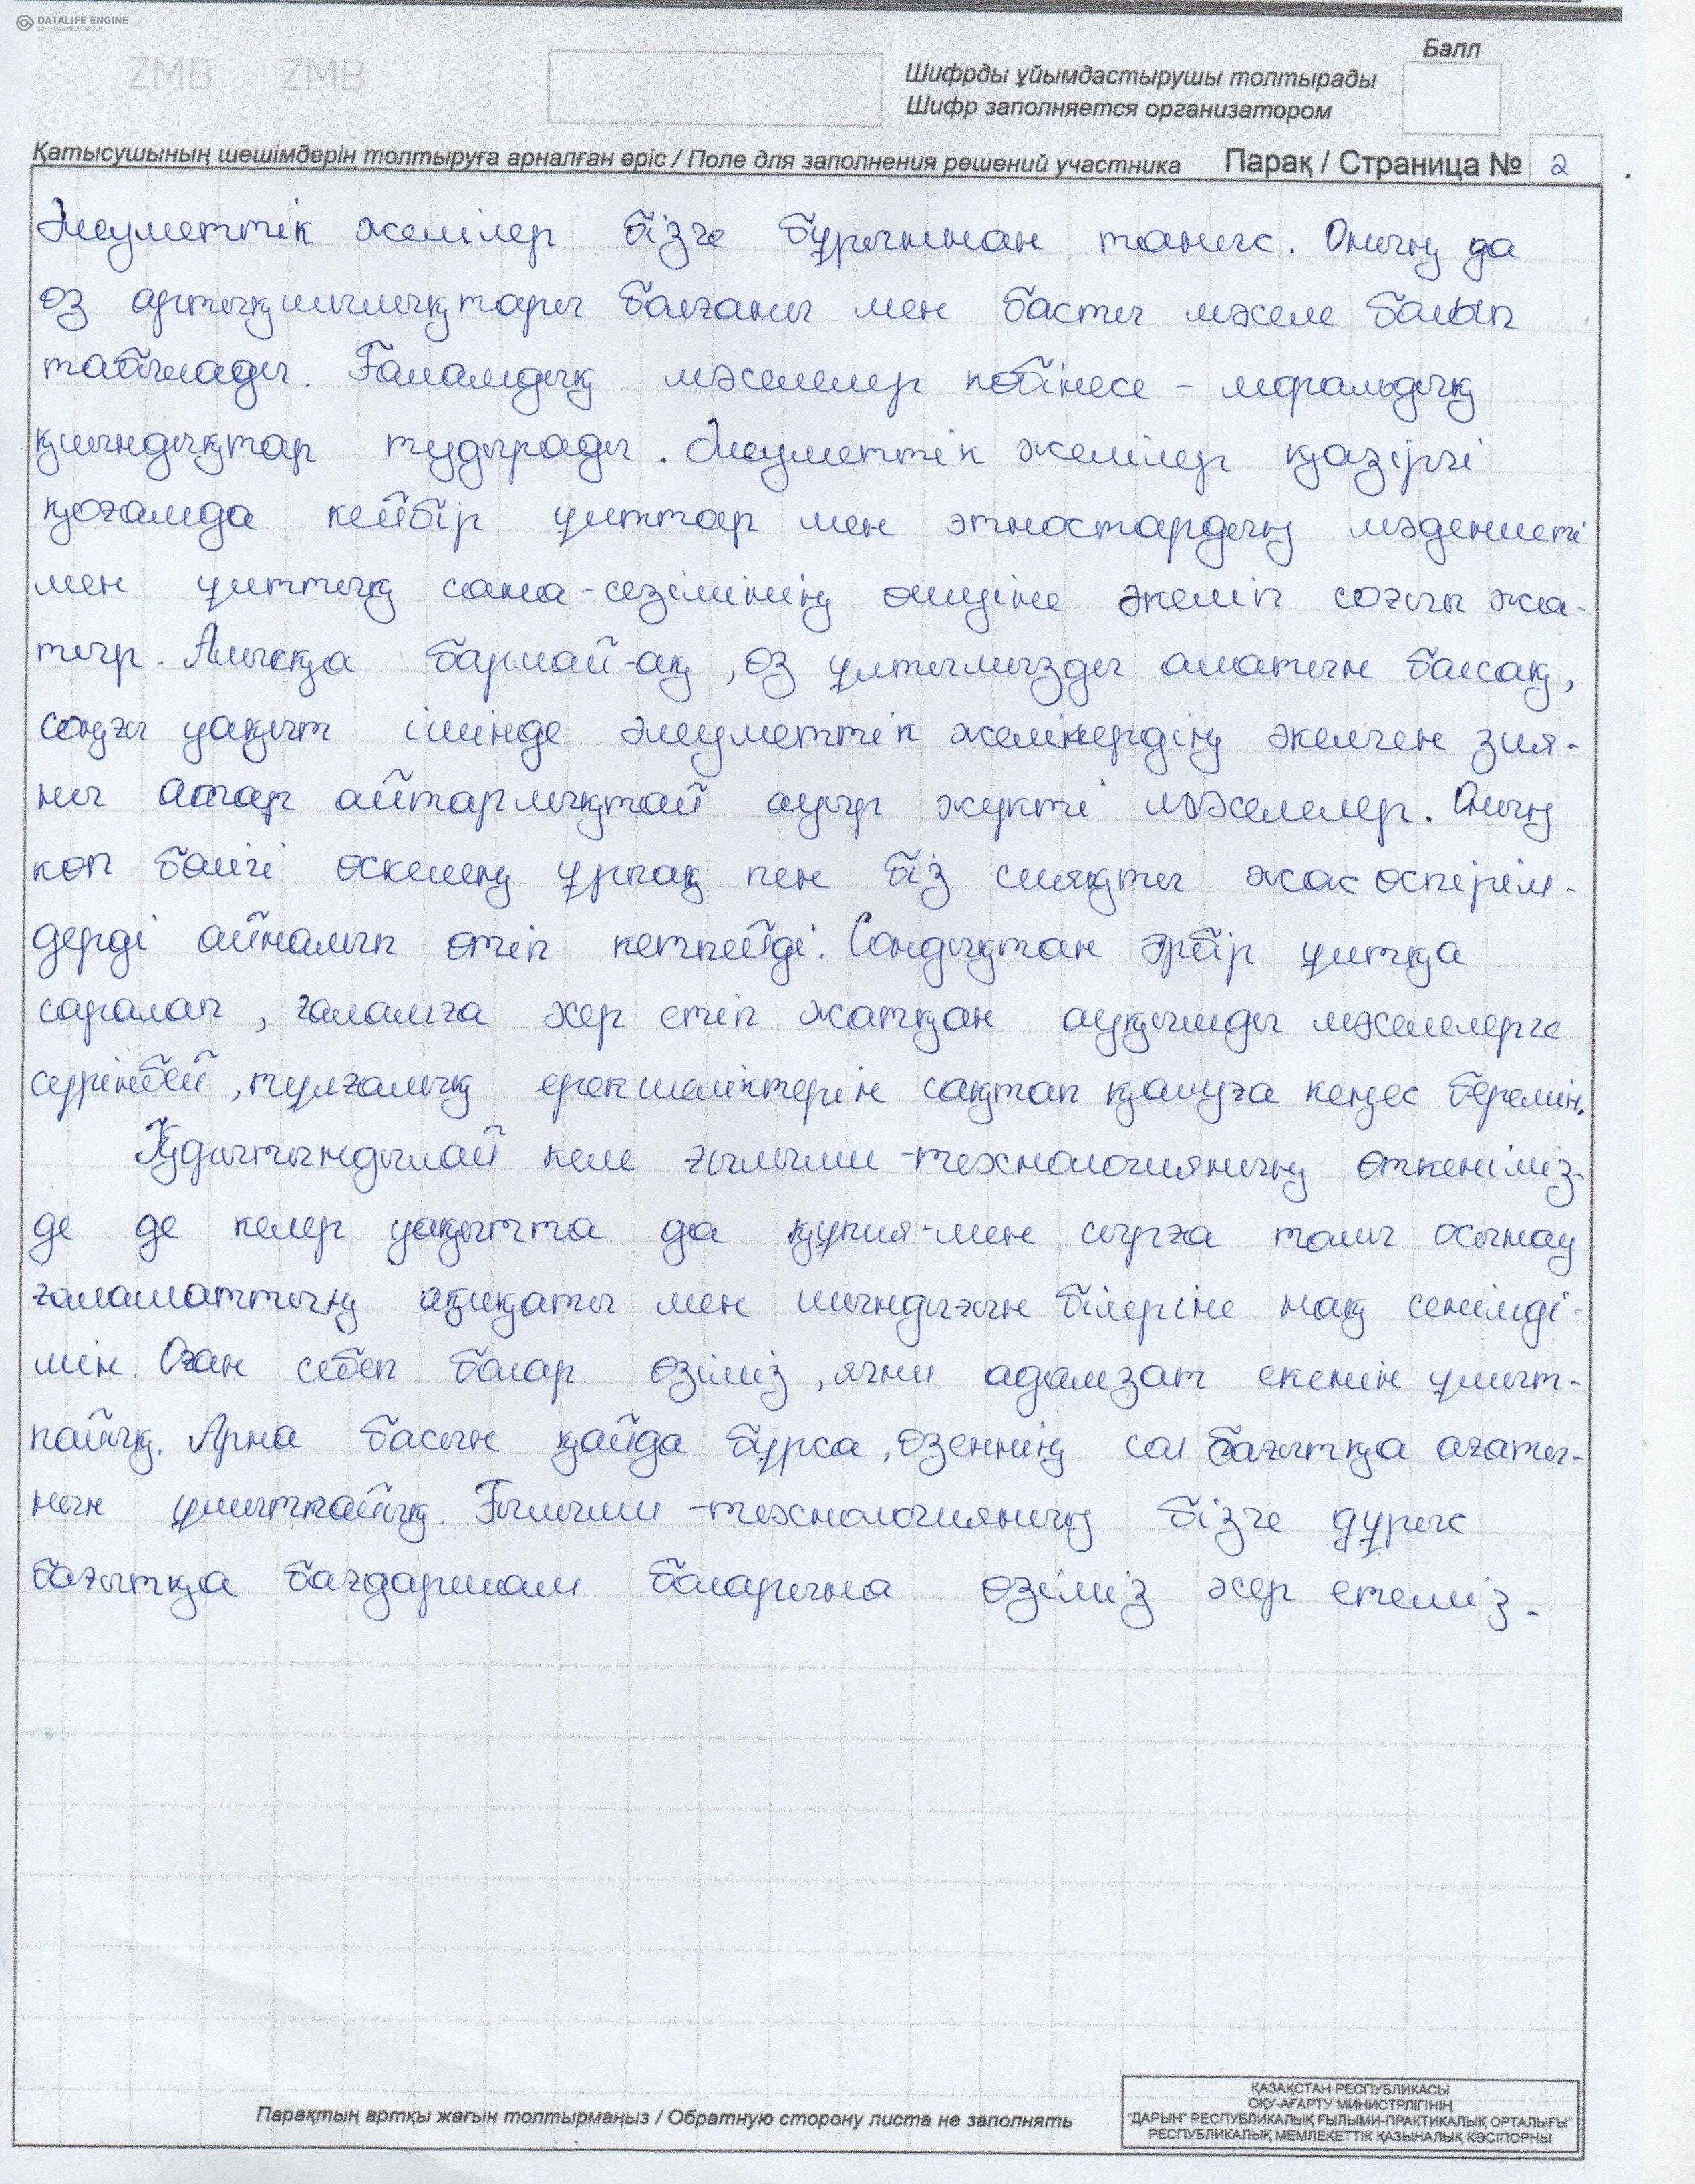 DATALIFE ENGINE
SOFTNEWS MEDIA GROUP
ZMB ZMB
Балл
Шифрды ұйымдастырушы толтырады
Шифр заполняется организатором
Қатысушының шешімдерін толтыруға арналған өріс / Поле для заполнения решений участника Парақ / Страница № 2
Әлеуметтік желілер бізге бұрыннан таныс. Оның да
өз артықшылықтары болғаны мен басты мәселе болып
табылады. Ғаламдық мәселелер көбінесе - моральдық
қиындықтар тудырады. Әлеуметтік желілер қазіргі
қоғамда кейбір ұлттар мен этностардың мәдениеті
мен ұлттық сана-сезімінің өшуіне әкеліп соғып жа-
тыр. Алысқа бармай-ақ, өз ұлтымызды алатын болсақ,
соңғы уақыт ішінде әлеуметтік желілердің әкелген зия-
ны атар айтарлықтай ауыр жүкті мәселелер. Оның
көп бөлігі өскелең ұрпақ пен біз сияқты жасөспірім-
дерді айналып өтіп кетпейді. Сондықтан әрбір ұлтқа
саралап, ғаламға әсер етіп жатқан ауқымды мәселелерге
сүрінбей, тұлғалық ерекшеліктерін сақтап қалуға кеңес беремін.
Қудытындылай келе ғылыми-технологияның өткеніміз-
де де келер уақытта да құпия-мен сырға толы осынау
ғаламаттың ақиқаты мен шындығын білеріне нақ сенімді-
мін. Оған себеп болар өзіміз, яғни адамзат екенін ұмыт-
пайық. Арна басын қайда бұрса, өзеннің сол бағытқа ағаты-
нын ұмытпайық. Ғылыми-технологияның бізге дұрыс
бағытқа бағдаршам боларына өзіміз әсер етеміз.
Парақтың артқы жағын толтырмаңыз / Обратную сторону листа не заполнять
ҚАЗАҚСТАН РЕСПУБЛИКАСЫ
ОҚУ-АҒАРТУ МИНИСТРЛІГІНІҢ
"ДАРЫН" РЕСПУБЛИКАЛЫҚ ҒЫЛЫМИ-ПРАКТИКАЛЫҚ ОРТАЛЫҒЫ"
РЕСПУБЛИКАЛЫҚ МЕМЛЕКЕТТІК ҚАЗЫНАЛЫҚ КӘСІПОРНЫ